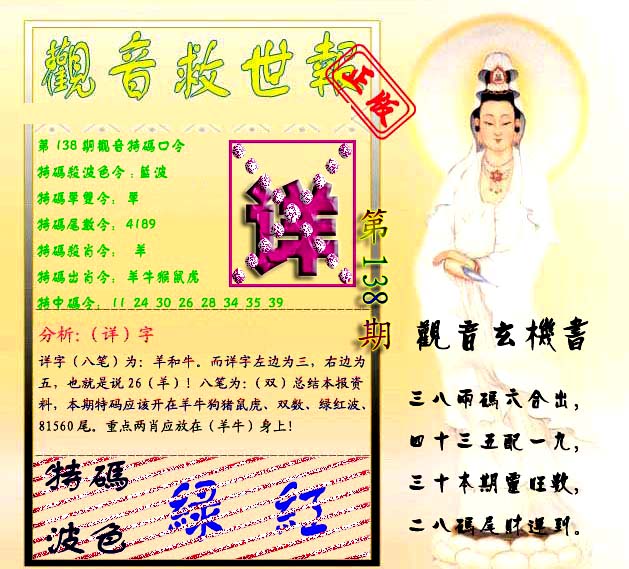 觀音救世報
正版
第138期觀音特碼口令
特碼殺波色令:藍波
特碼單雙令: 單
特碼尾數令: 4189
特碼殺肖令: 羊
特碼出肖令: 羊牛猴鼠虎
特中碼令: 11 24 30 26 28 34 35 39
详
第138期
分析:(详)字
详字(八笔)为:羊和牛。而详字左边为三,右边为
五,也就是说26(羊)!八笔为:(双)总结本报资
料,本期特码应该开在羊牛狗猪鼠虎、双数、绿红波、
81560尾。重点两肖应放在(羊牛)身上!
特碼
波色
綠 紅
觀音玄機書
三八兩碼六合出,
四十三五配一九,
三十本期靈旺数,
二八碼尾财運到。